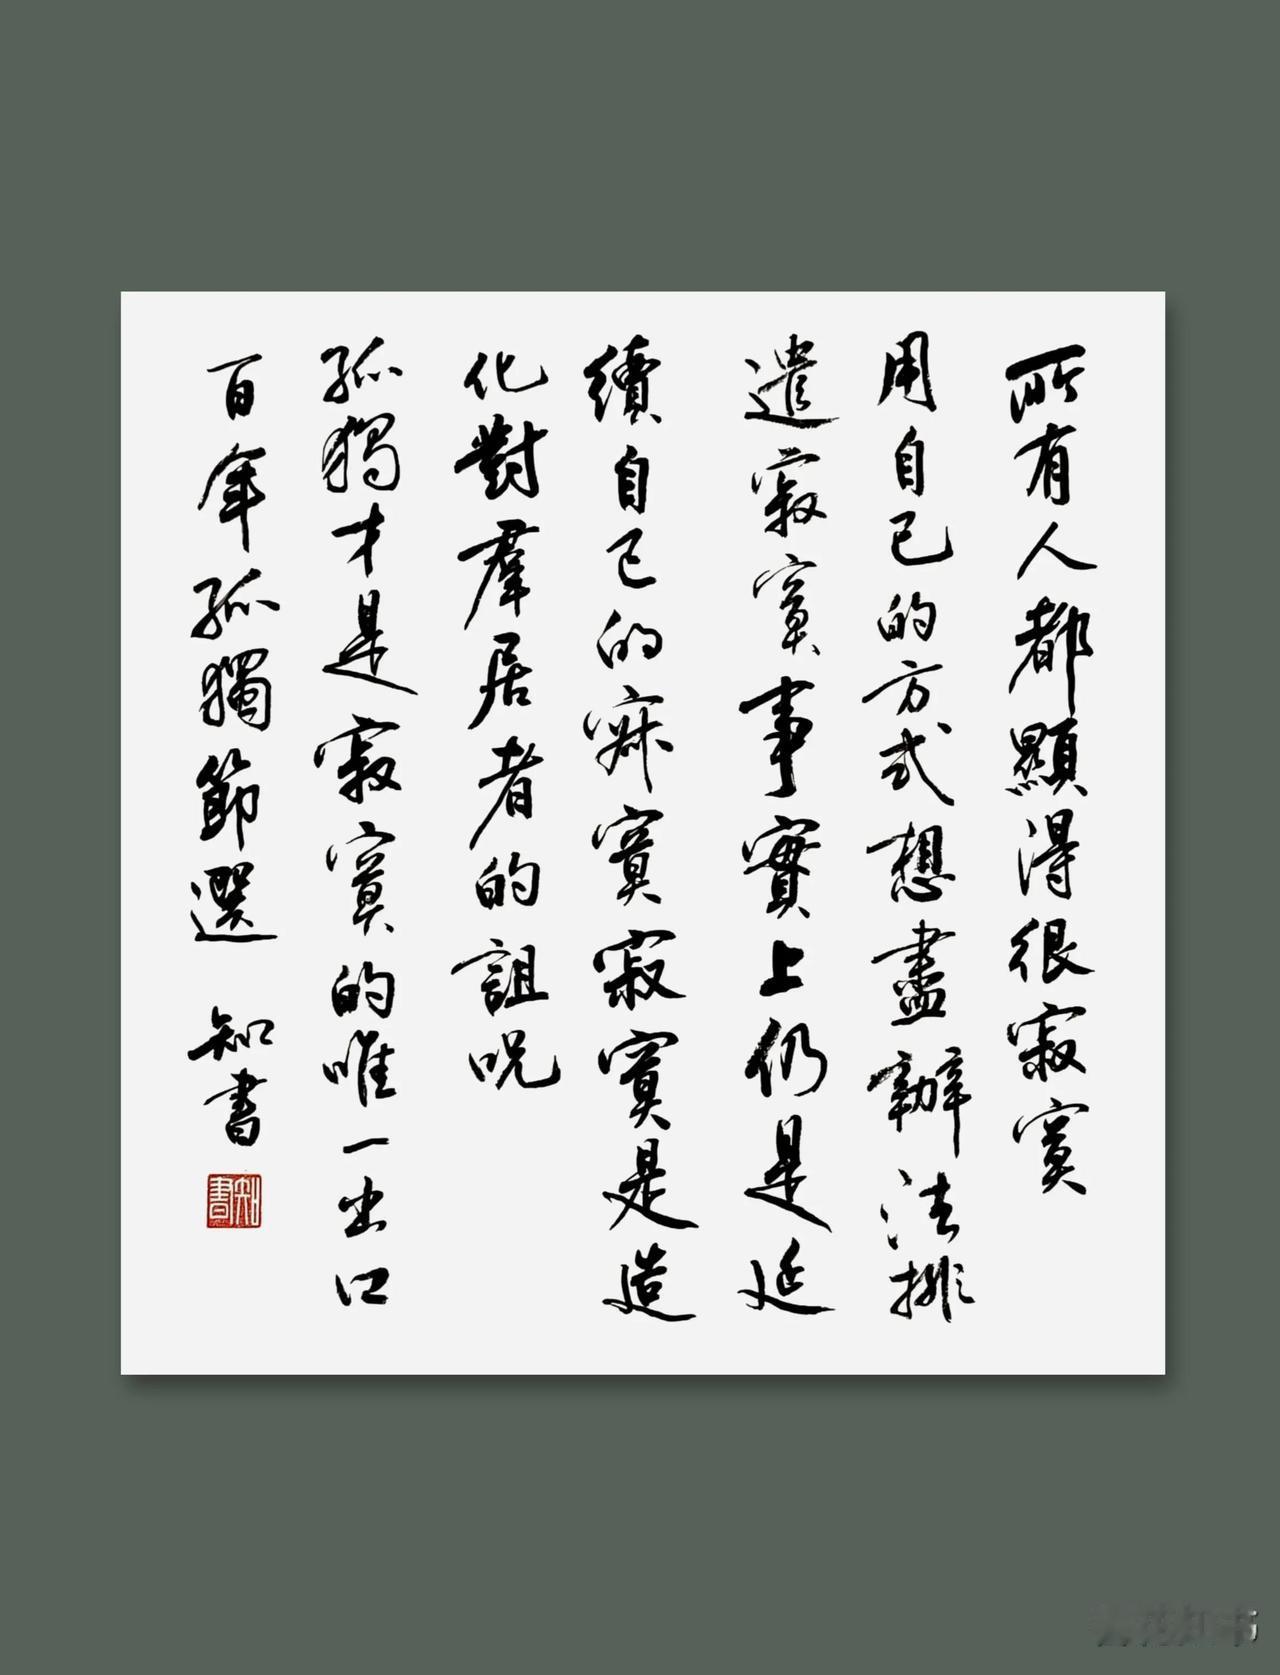 所有人都顯得很寂寞
用自己的方式想盡辦法排
遣寂寞事實上仍是延
續自己的寂寞寂寞是造
化對羣居者的詛呪
孤獨才是寂寞的唯一出口
百年孤獨節選 知書
知書